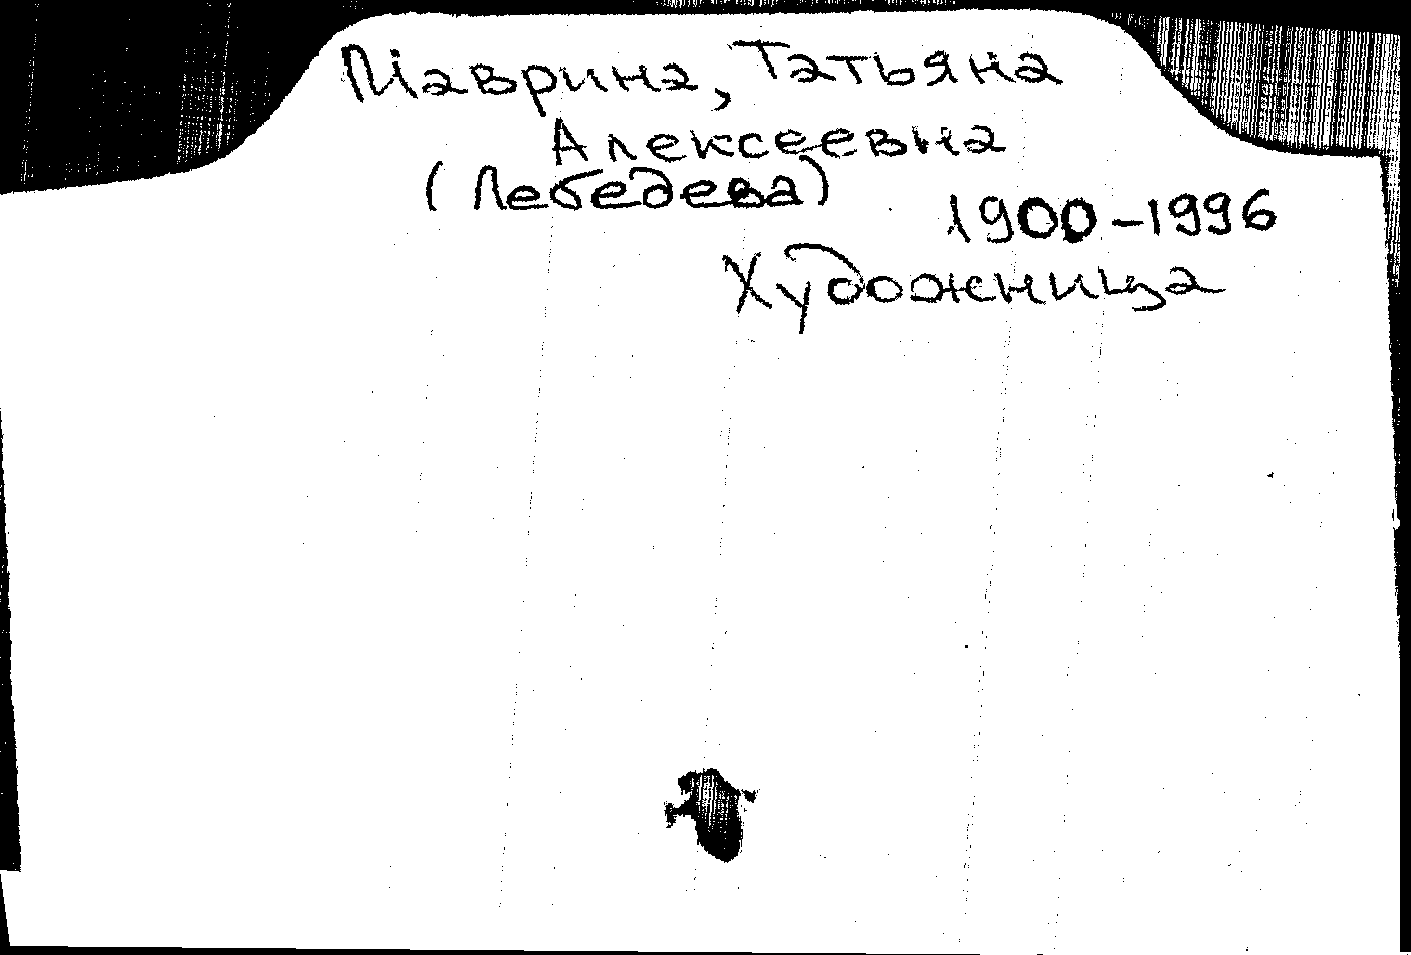 Маврина, Татьяна
Алексеевна
(Лебедева)
1900-1996
Художница